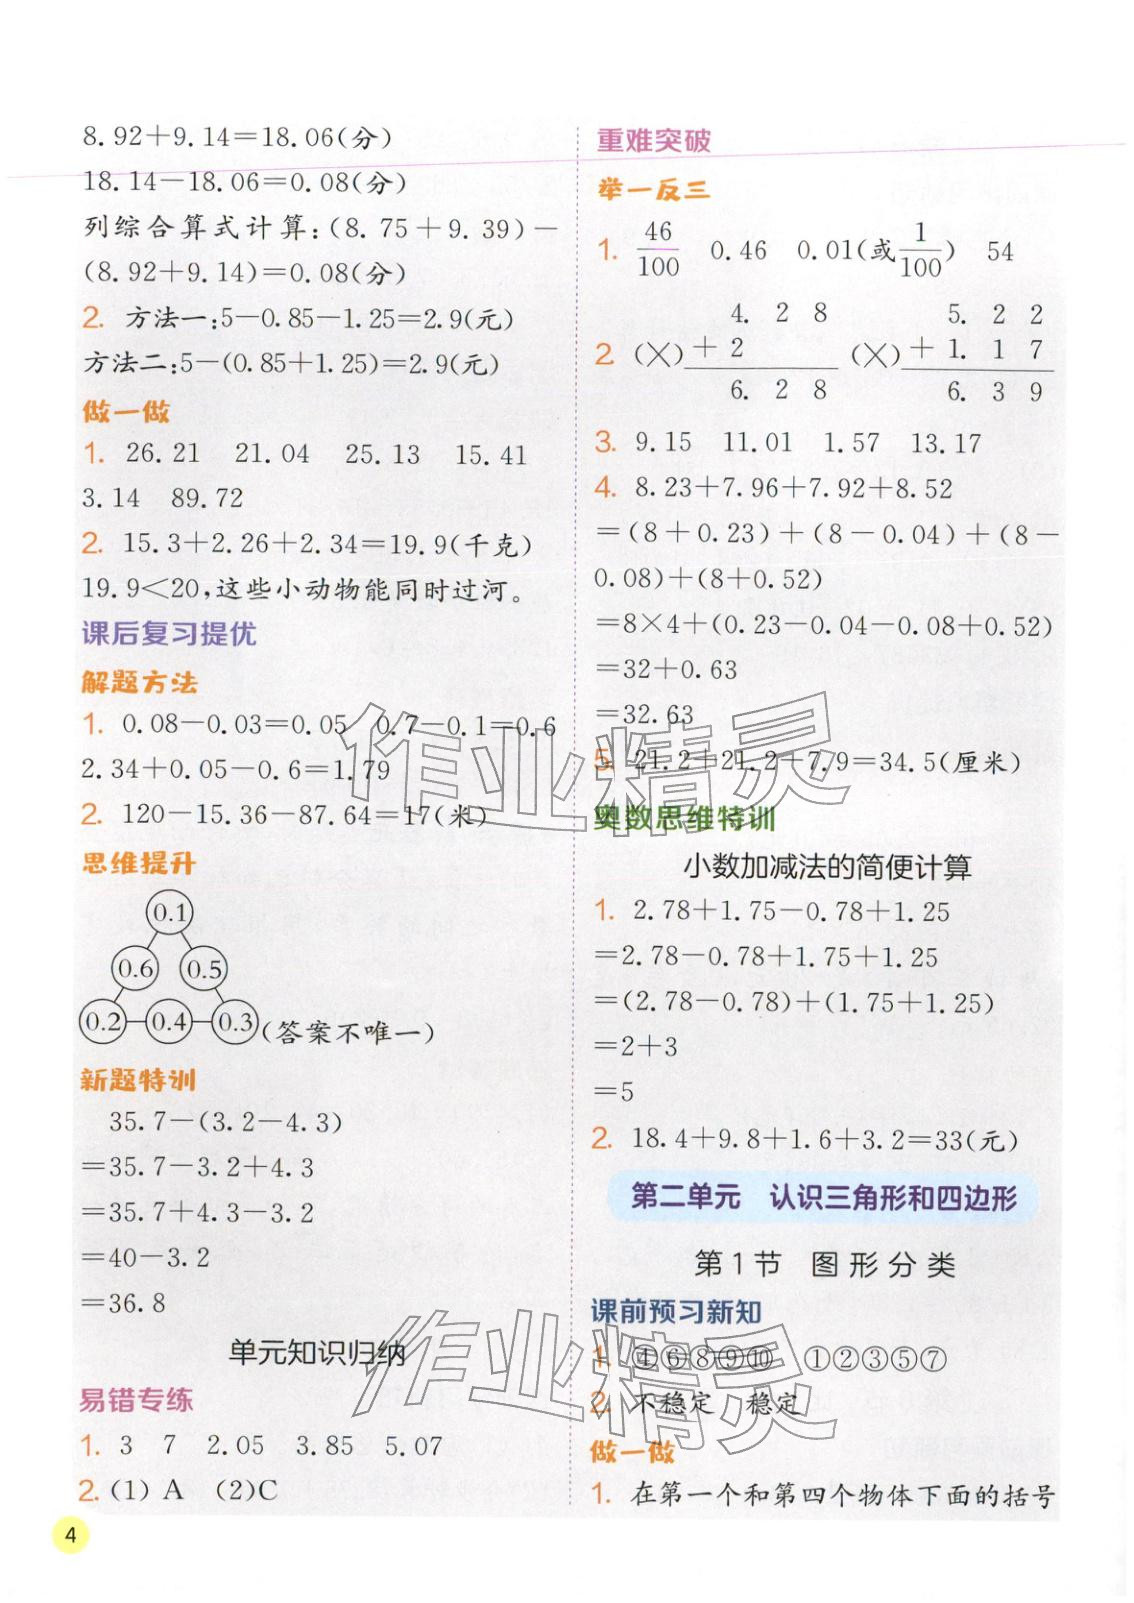 8.92+9.14=18.06(分)
18.14-18.06=0.08(分)
列综合算式计算:(8.75+9.39)-
(8.92+9.14)=0.08(分)
2. 方法一:5-0.85-1.25=2.9(元)
方法二:5-(0.85+1.25)=2.9(元)
做一做
1. 26.21 21.04 25.13 15.41
3.14 89.72
2. 15.3+2.26+2.34=19.9(千克)
19.9<20,这些小动物能同时过河。
课后复习提优
解题方法
1. 0.08-0.03=0.05 0.7-0.1=0.6
2.34+0.05-0.6=1.79
2. 120-15.36-87.64=17(米)
思维提升
0.1
0.6 0.5
0.2 0.4 0.3 (答案不唯一)
新题特训
35.7-(3.2-4.3)
=35.7-3.2+4.3
=35.7+4.3-3.2
=40-3.2
=36.8
单元知识归纳
易错专练
1. 3 7 2.05 3.85 5.07
2. (1) A (2)C
4
重难突破
举一反三
1. 46/100 0.46 0.01(或1/100) 54
4. 2 8 5. 2 2
2 (×) + 2 (×) + 1. 1 7
6. 2 8 6. 3 9
3. 9.15 11.01 1.57 13.17
4. 8.23+7.96+7.92+8.52
=(8+0.23)+(8-0.04)+(8-
0.08)+(8+0.52)
=8×4+(0.23-0.04-0.08+0.52)
=32+0.63
=32.63
5. 21.2+21.2-7.9=34.5(厘米)
奥数思维特训
小数加减法的简便计算
1. 2.78+1.75-0.78+1.25
=2.78-0.78+1.75+1.25
=(2.78-0.78)+(1.75+1.25)
=2+3
=5
2. 18.4+9.8+1.6+3.2=33(元)
第二单元 认识三角形和四边形
第1节 图形分类
课前预习新知
1. ④⑥⑧⑨⑩ ①②③⑤⑦
2. 不稳定 稳定
做一做
1. 在第一个和第四个物体下面的括号
作业精灵
作业精灵